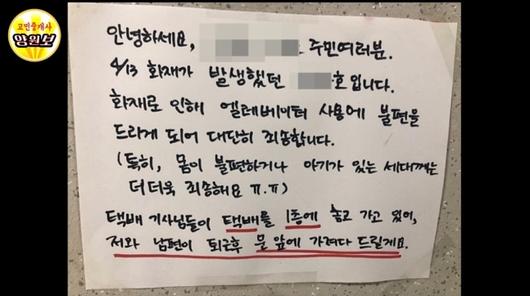 고민중개사
양원보
안녕하세요, 주민여러분.
4/13 화재가 발생했던 호입니다.
화재로 인해 엘레베이터 사용에 불편을
드리게 되어 대단히 죄송합니다.
(특히, 몸이 불편하거나 아기가 있는 세대께는
더더욱 죄송해요 ㅠ.ㅠ)
택배 기사님들이 택배를 1층에 놓고 가고 있어,
저와 남편이 퇴근후 문 앞에 가져다 드릴게요.